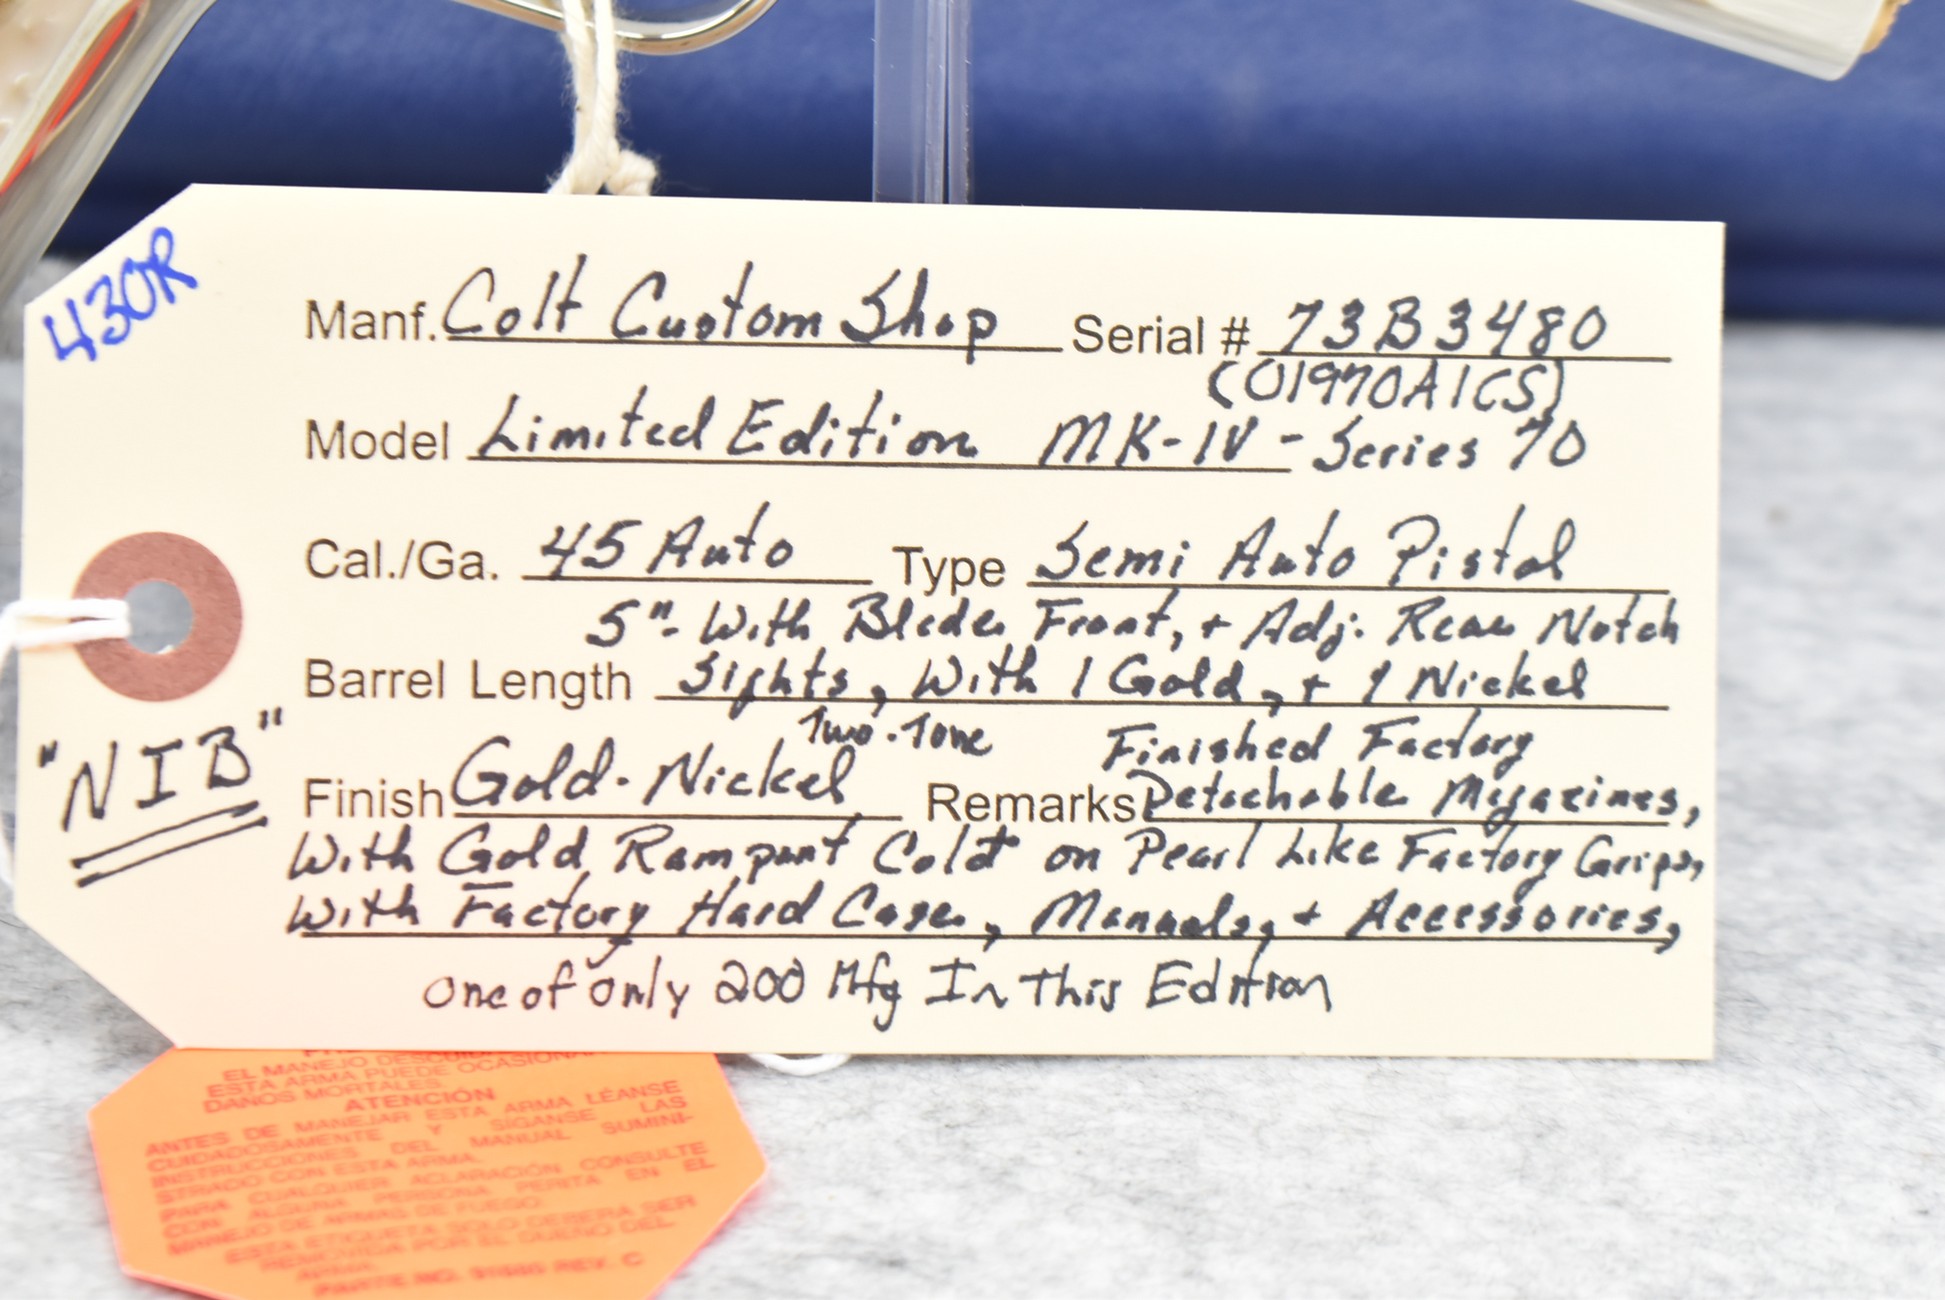 430R
Manf. Colt Custom Shop Serial # 73B3480
(O1970A1CS)
Model Limited Edition MK-IV - Series 70
Cal./Ga. 45 Auto Type Semi Auto Pistol
5"- With Blade Front, + Adj. Rear Notch
Barrel Length Sights, With 1 Gold, + 1 Nickel
Two-Tone Finished Factory
Finish Gold-Nickel Remarks Detachable Magazines,
"NIB"
With Gold Rampant Colt on Pearl Like Factory Grips,
With Factory Hard Case, Manuals, + Accessories,
One of only 200 Mfg In This Edition
EL MANEJO
ESTA ARMA PUEDE OCASIONA
DAÑOS MORTALES.
ATENCIÓN
ANTES DE MANEJAR ESTA ARMA LÉANSE
CUIDADOSAMENTE Y SÍGANSE LAS
INSTRUCCIONES DEL MANUAL SUMINI-
STRADO CON ESTA ARMA.
PARA CUALQUIER ACLARACIÓN CONSULTE
CON ALGUNA PERSONA PERITA EN EL
MANEJO DE ARMAS DE FUEGO.
ESTA ETIQUETA SOLO DEBERA SER
REMOVIDA POR EL DUEÑO DEL
ARMA.
REV. C